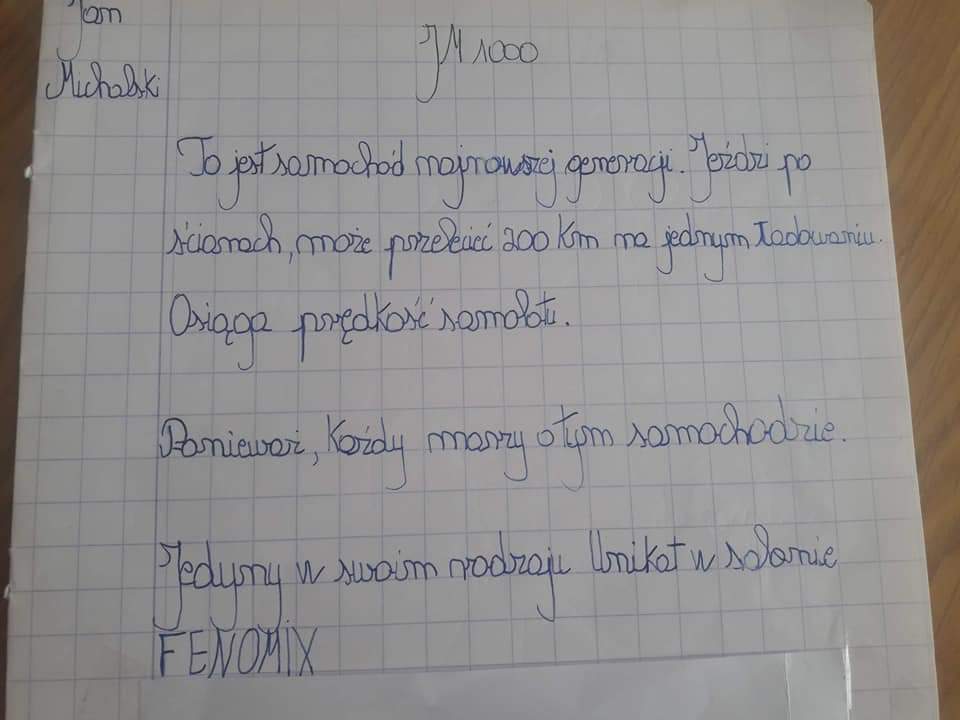 Jan
Michalski
JM 1000
To jest samochód najnowszej generacji. Jeździ po
ścianach, może przelecić 200 km na jednym ładowaniu.
Osiąga prędkość samolotu.
Ponieważ, każdy marzy o tym samochodzie.
Jedyny w swoim rodzaju Unikat w salonie
FENOMIX